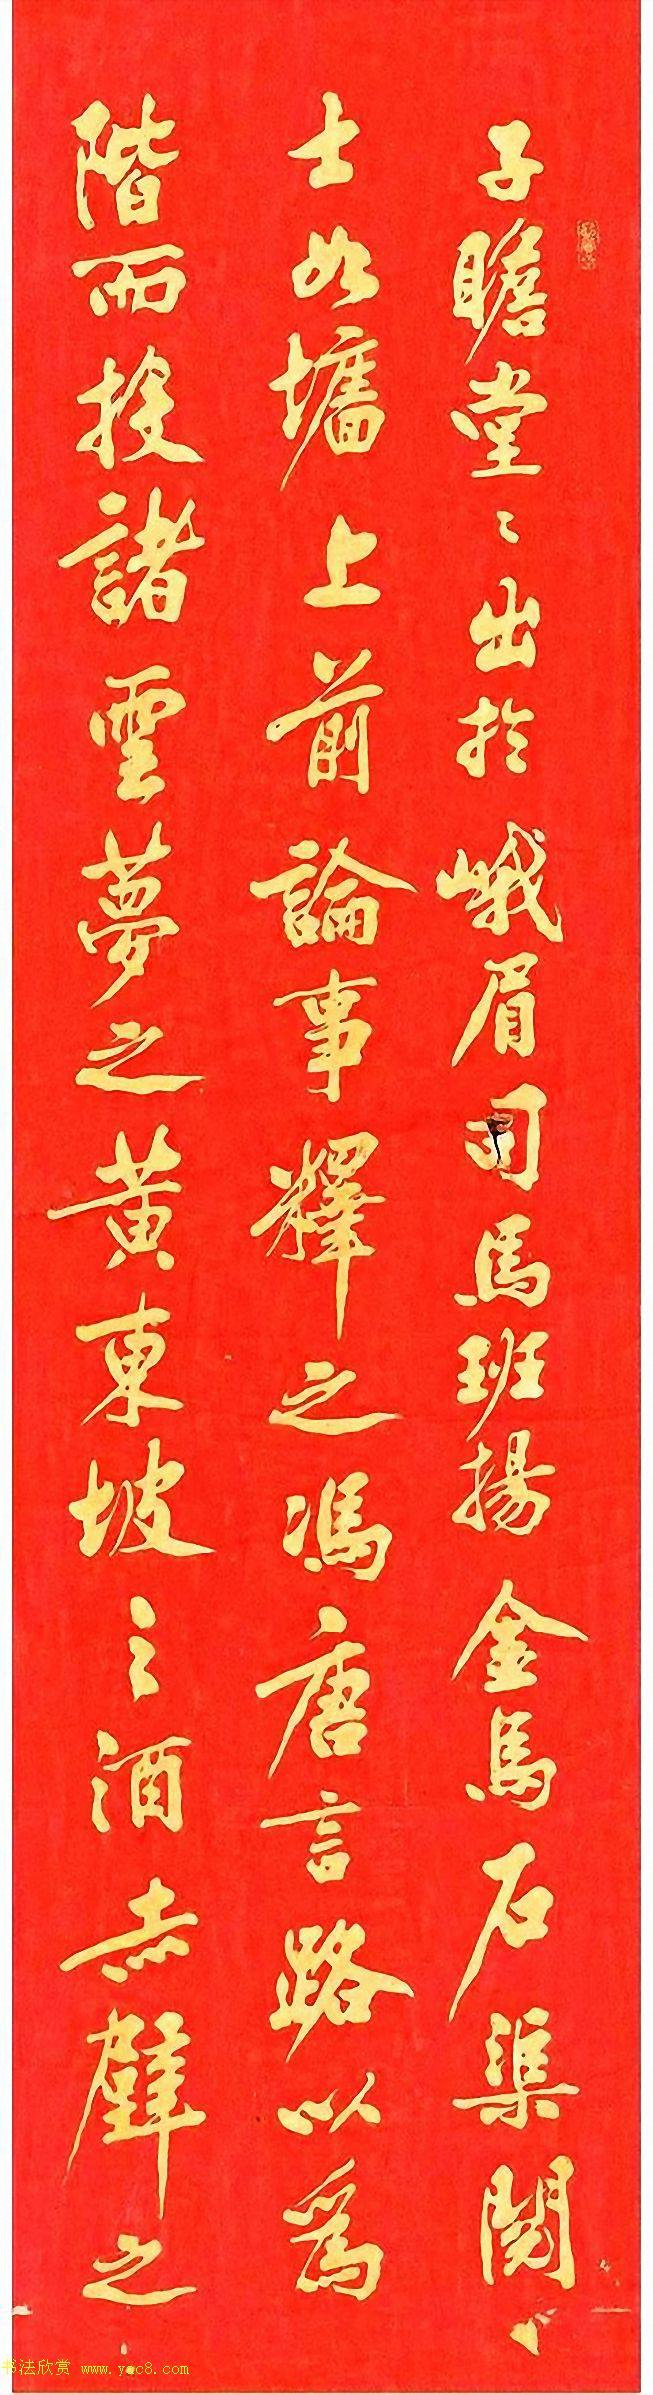 子瞻堂〻出於峨眉司馬班揚金馬石渠閱
士如墻上前論事釋之馮唐言路以為
階而投諸雲夢之黃東坡之酒赤壁之
书法欣赏 www.yac8.com